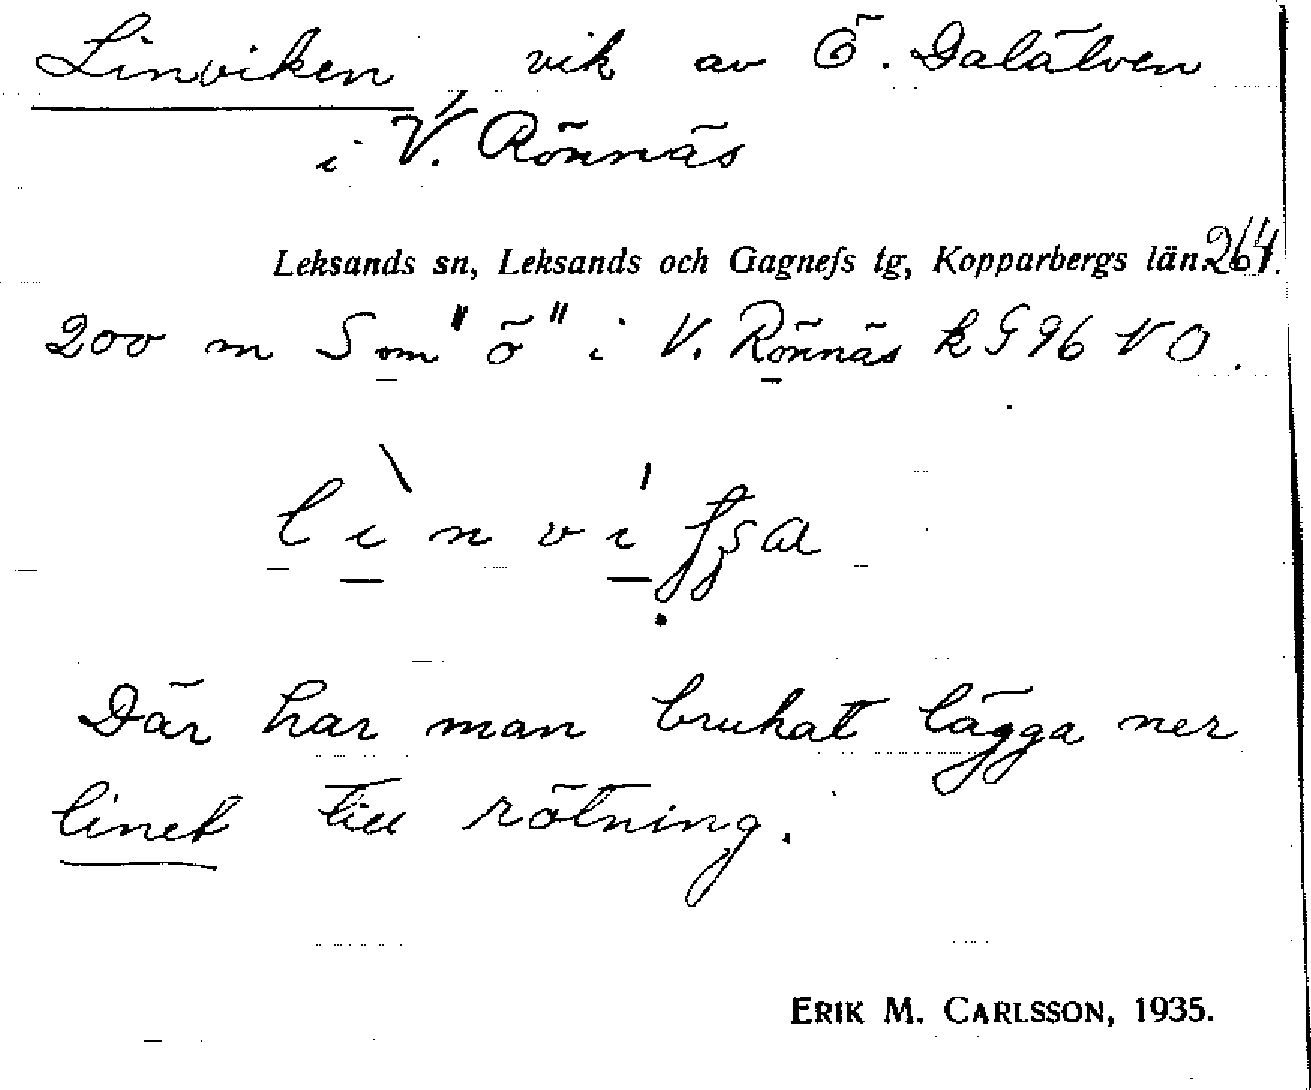 Linviken vik av Ö. Dalälven
i V. Rönnäs
Leksands sn, Leksands och Gagnefs tg, Kopparbergs län. 264.
200 m S om "ö" i V. Rönnäs k G 96 NO.
Där har man brukat lägga ner
linet till rötning.
ERIK M. CARLSSON, 1935.